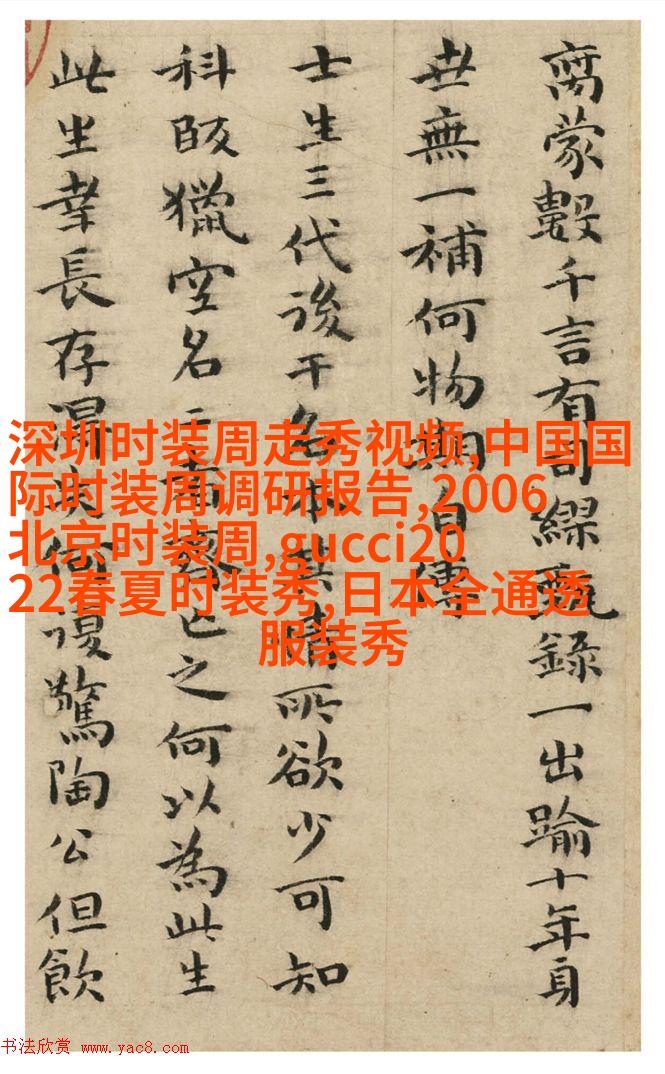 离蒙數千言有司繆甄錄一出踰十年身
世無一補何物期自傳
士生三代後干名本其情所欲少可知
科段獵空名亡之何以為此生
此生幸長存復驚陶公但飲
深圳时装周走秀视频,中国国
际时装周调研报告,2006
北京时装周,gucci20
22春夏时装秀,日本全通透
服装秀
书法欣赏 www.yac8.com